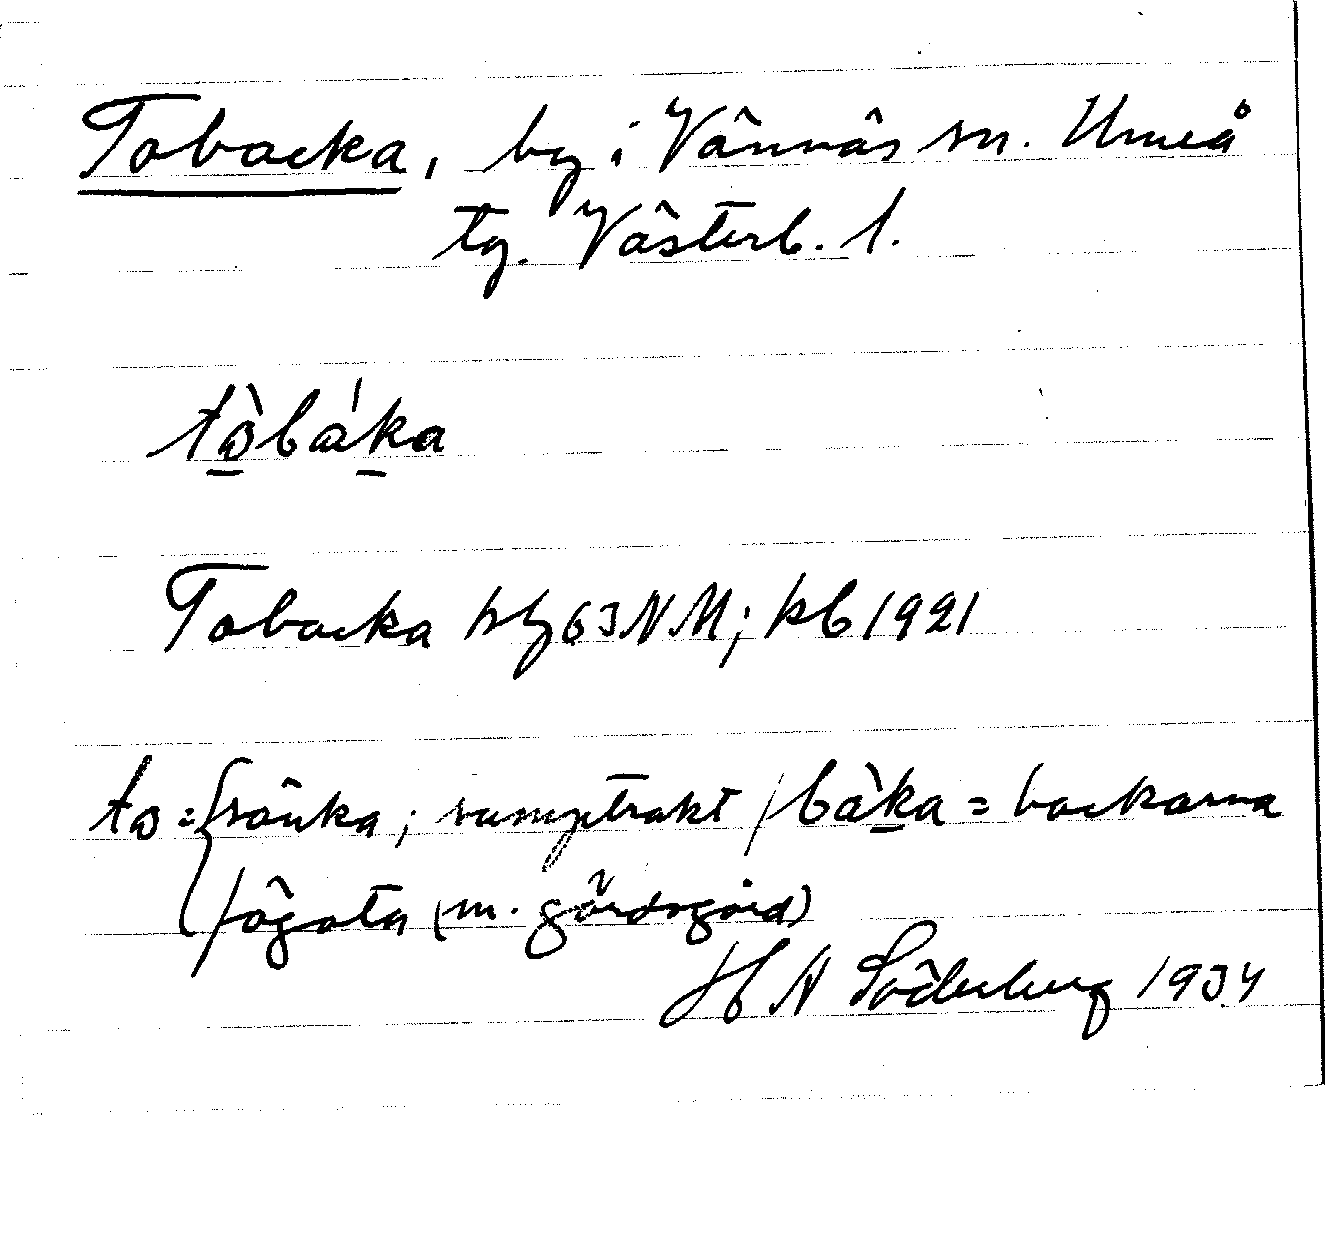 Tobacka, by i Vännäs sn. Umeå
tg. Västerb. l.
tɷ̀báka
Tobacka bl 63 NM; kb 1921
tɷ = sänka; sumptrakt / bàka = backarna
fägata (m. gärdsgård)
H A Söderberg 1934